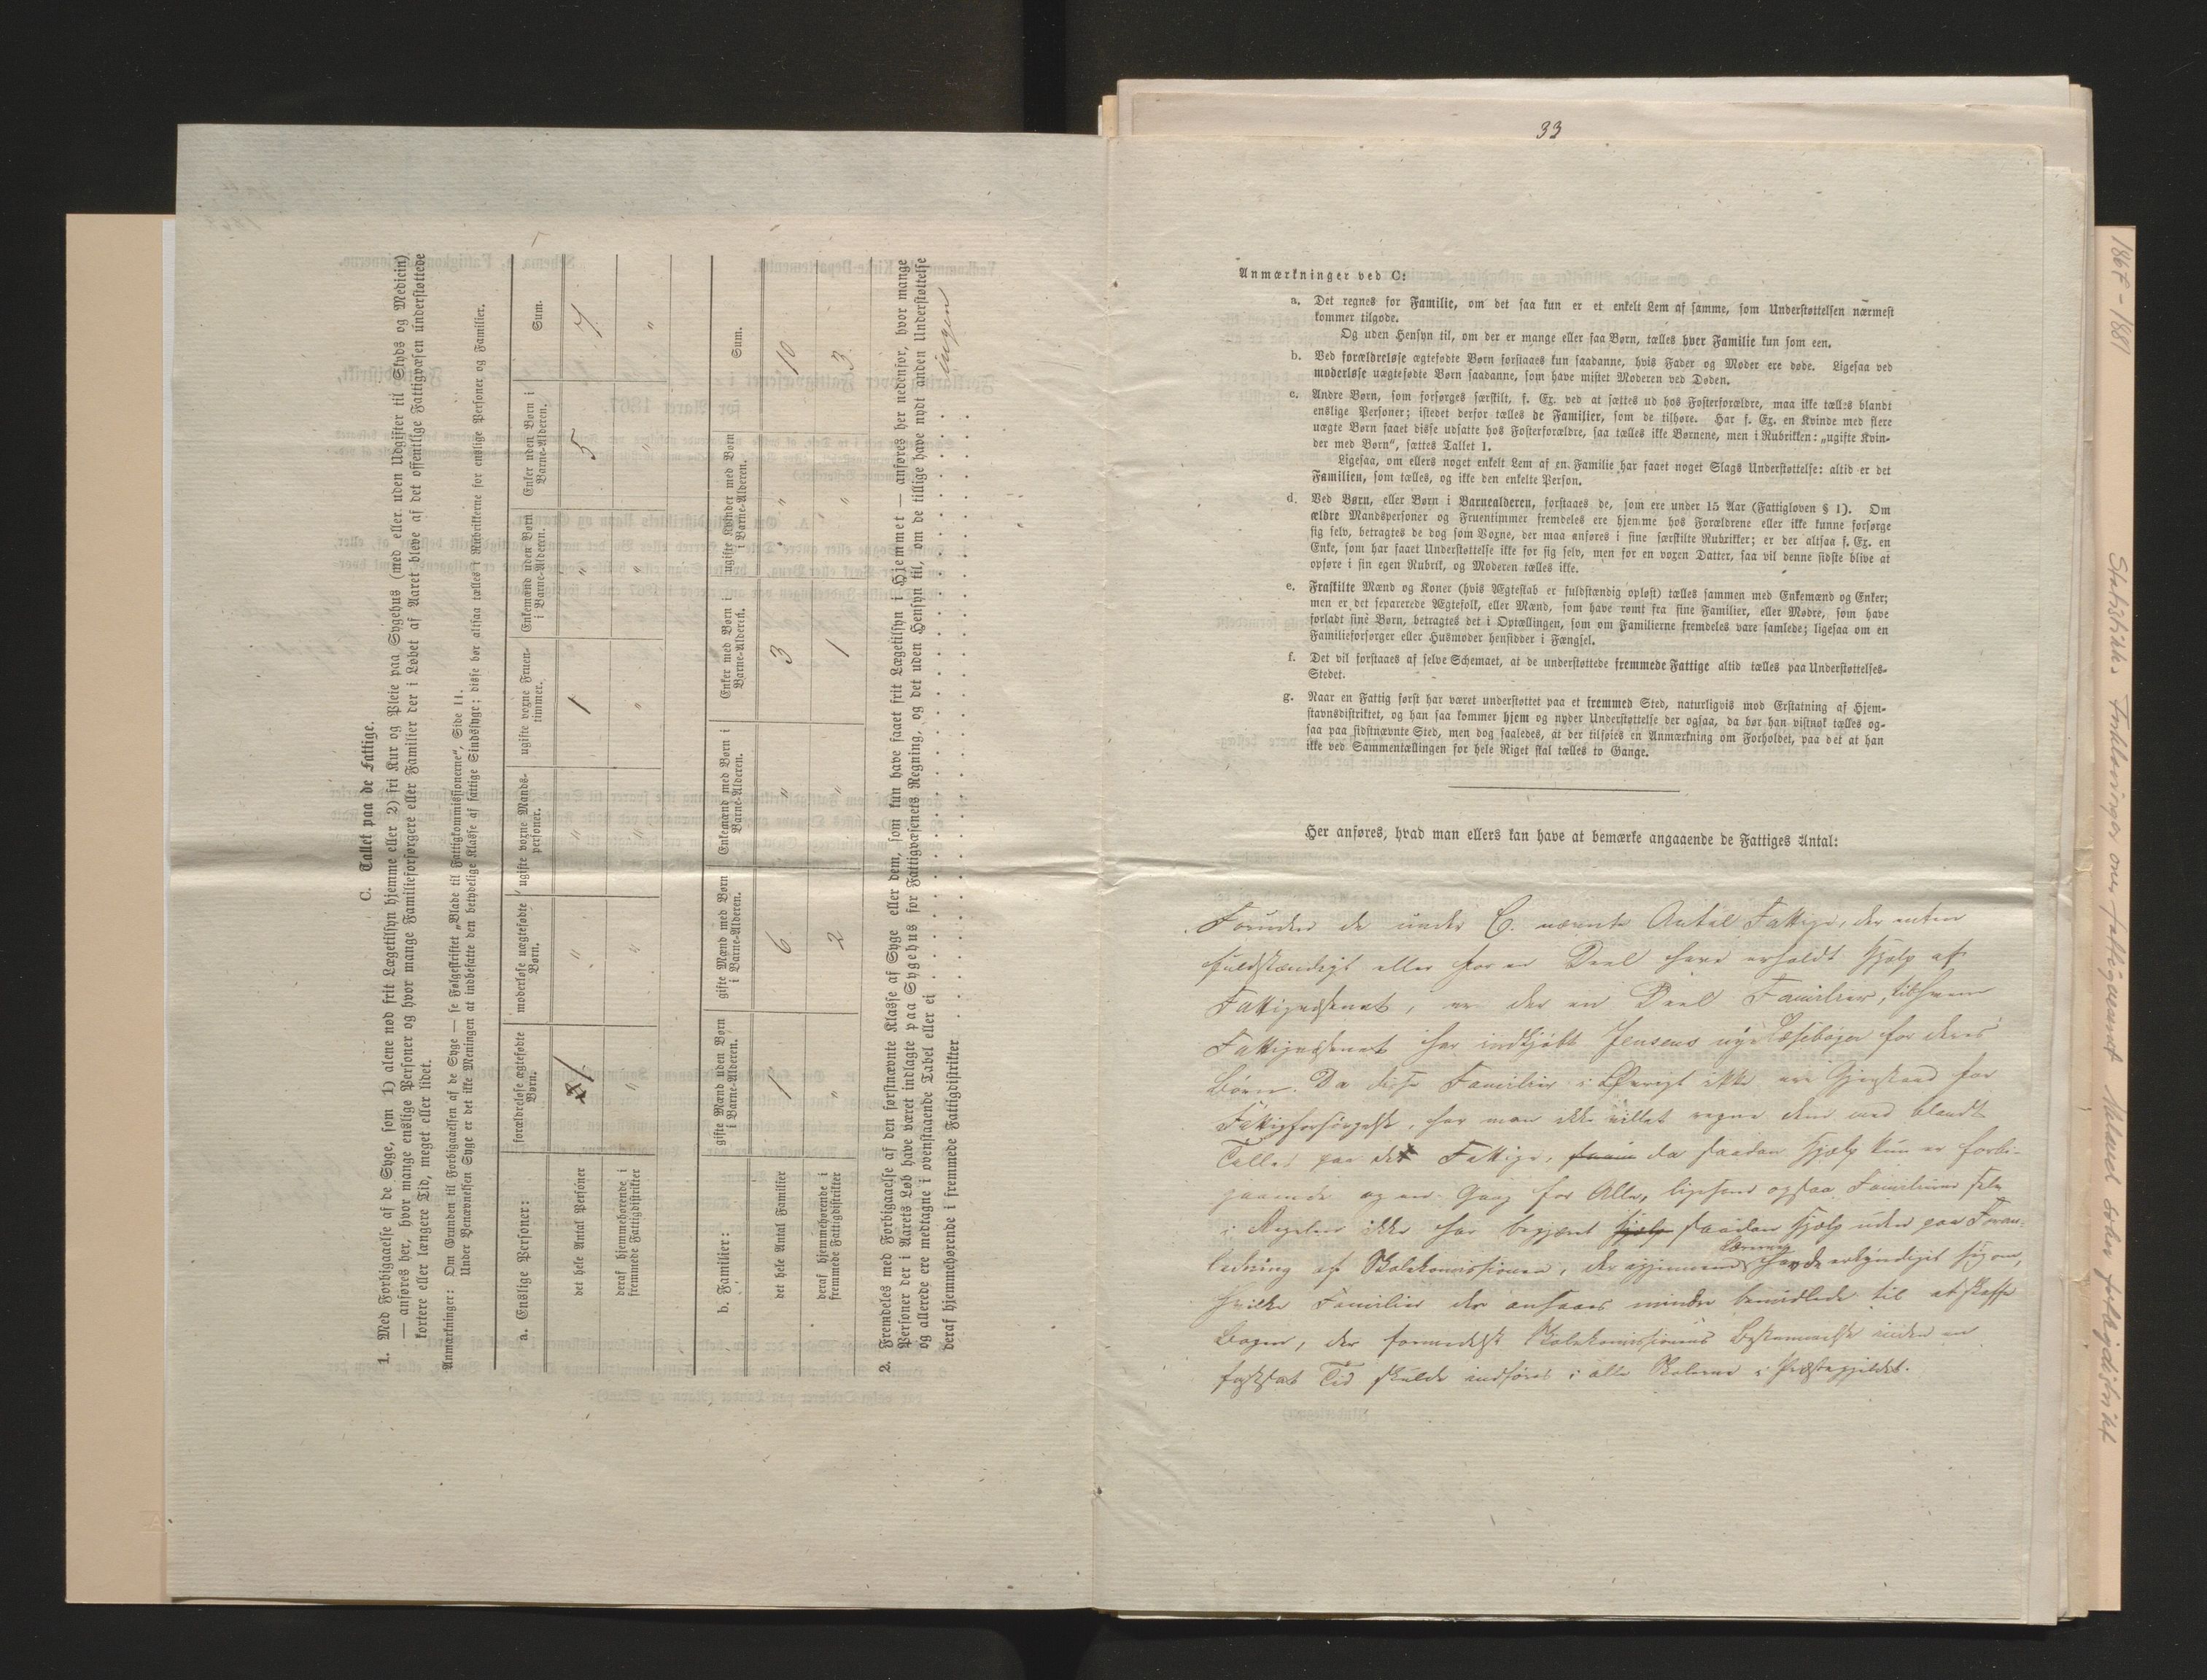 C. Tallet paa de Fattige.
1. Med Forbigaaelse af de Syge, som 1) alene nød frit Lægetilsyn hjemme eller 2) fri Kur og Pleie paa Sygehus (med eller uden Udgifter til Skyds og Medicin)
— anføres her, hvor mange enslige Personer og hvor mange Familieforsørgere eller Familier der i Løbet af Aaret bleve af det offentlige Fattigvæsen understøttede
kortere eller længere Tid, meget eller lidet.
Anmærkninger: Om Grunden til Forbigaaelsen af de Syge — se Følgeskriftet „Blade til Fattigkommissionerne“, Side 11.
Under Benævnelsen Syge er det ikke Meningen at indbefatte den betydelige Klasse af fattige Sindssyge; disse bør altsaa tælles i Rubrikkerne for enslige Personer og Familier.
a. Enslige Personer: | forældreløse ægtefødte Børn. | moderløse uægtefødte Børn. | ugifte voxne Mandspersoner. | ugifte voxne Fruentimmer. | Enkemænd uden Børn i Barne-Alderen. | Enker uden Børn i Barne-Alderen. | Sum.
det hele Antal Personer | 1 | " | " | 1 | " | 5 | 7
deraf hjemmehørende i fremmede Fattigdistrikter | " | " | " | " | " | " | "
b. Familier: | gifte Mænd uden Børn i Barne-Alderen. | gifte Mænd med Børn i Barne-Alderen. | Enkemænd med Børn i Barne-Alderen. | Enker med Børn i Barne-Alderen. | ugifte Kvinder med Børn i Barne-Alderen. | Sum.
det hele Antal Familier | 1 | 6 | " | 3 | " | 10
deraf hjemmehørende i fremmede Fattigdistrikter | " | 2 | " | 1 | " | 3
2. Fremdeles med Forbigaaelse af den førstnævnte Klasse af Syge eller dem, som kun have faaet frit Lægetilsyn i Hjemmet — anføres her nedenfor, hvor mange
Personer der i Aarets Løb have været indlagte paa Sygehus for Fattigvæsenets Regning, og det uden Hensyn til, om de tillige have nydt anden Understøttelse
og allerede ere medtagne i ovenstaaende Tabel eller ei . . . . . . . . . . ingen
deraf hjemmehørende i fremmede Fattigdistrikter . . . . . . . . . .
33
Anmærkninger ved C:
a. Det regnes for Familie, om det saa kun er et enkelt Lem af samme, som Understøttelsen nærmest
kommer tilgode.
Og uden Hensyn til, om der er mange eller faa Børn, tælles hver Familie kun som een.
b. Ved forældreløse ægtefødte Børn forstaaes kun saadanne, hvis Fader og Moder ere døde. Ligesaa ved
moderløse uægtefødte Børn saadanne, som have mistet Moderen ved Døden.
c. Andre Børn, som forsørges særskilt, f. Ex. ved at sættes ud hos Fosterforældre, maa ikke tælles blandt
enslige Personer; istedet derfor tælles de Familier, som de tilhøre. Har f. Ex. en Kvinde med flere
uægte Børn faaet disse udsatte hos Fosterforældre, saa tælles ikke Børnene, men i Rubriken: „ugifte Kvin-
der med Børn“, sættes Tallet 1.
Ligesaa, om ellers noget enkelt Lem af en Familie har faaet noget Slags Understøttelse: altid er det
Familien, som tælles, og ikke den enkelte Person.
d. Ved Børn, eller Børn i Barnealderen, forstaaes de, som ere under 15 Aar (Fattigloven § 1). Om
ældre Mandspersoner og Fruentimmer fremdeles ere hjemme hos Forældrene eller ikke kunne forsørge
sig selv, betragtes de dog som Voxne, der maa anføres i sine særskilte Rubrikker; er der altsaa f. Ex. en
Enke, som har faaet Understøttelse ikke for sig selv, men for en voxen Datter, saa vil denne sidste blive at
opføre i sin egen Rubrik, og Moderen tælles ikke.
e. Fraskilte Mænd og Koner (hvis Ægteskab er fuldstændig opløst) tælles sammen med Enkemænd og Enker;
men er det separerede Ægtefolk, eller Mænd, som have rømt fra sine Familier, eller Mødre, som have
forladt sine Børn, betragtes det i Optællingen, som om Familierne fremdeles vare samlede; ligesaa om en
Familieforsørger eller Husmoder hensidder i Fængsel.
f. Det vil forstaaes af selve Schemaet, at de understøttede fremmede Fattige altid tælles paa Understøttelses-
Stedet.
g. Naar en Fattig først har været understøttet paa et fremmed Sted, naturligvis mod Erstatning af Hjem-
stavnsdistriktet, og han saa kommer hjem og nyder Understøttelse der ogsaa, da bør han vistnok tælles og-
saa paa sidstnævnte Sted, men dog saaledes, at der tilføies en Anmærkning om Forholdet, paa det at han
ikke ved Sammentællingen for hele Riget skal tælles to Gange.
Her anføres, hvad man ellers kan have at bemærke angaaende de Fattiges Antal:
Foruden de under C. nævnte Antal Fattige, der enten
fuldstændigt eller for en Deel have erholdt Hjælp af
Fattigvæsenet, er der en Deel Familier, til hvem
Fattigvæsenet har indkjøbt Jensens nye Læsebøger for deres
Børn. Da disse Familier i Øvrigt ikke ere Gjenstand for
Fattigforsørgelse, har man ikke villet regne dem med blandt
Tallet paa de Fattige, da saadan Hjælp kun er forbi-
gaaende og een Gang for Alle, ligesom ogsaa Familierne selv
i Regelen ikke har begjæret Hjælp saadan Hjælp uden paa Foran-
ledning af Skolekomissionen, der igjennem Lærerne havde erkyndiget sig om,
hvilke Familier der ansaaes mindre bemidlede til at skaffe
Bogen, der formedelst Skolekomissionens Bestemmelse inden en
fastsat Tid skulde indføres i alle Skolerne i Præstegjeldet.
1867 - 1881 Statistiske Forklaringer over Fattigvæsenet Meland sokn fattigdistrikt